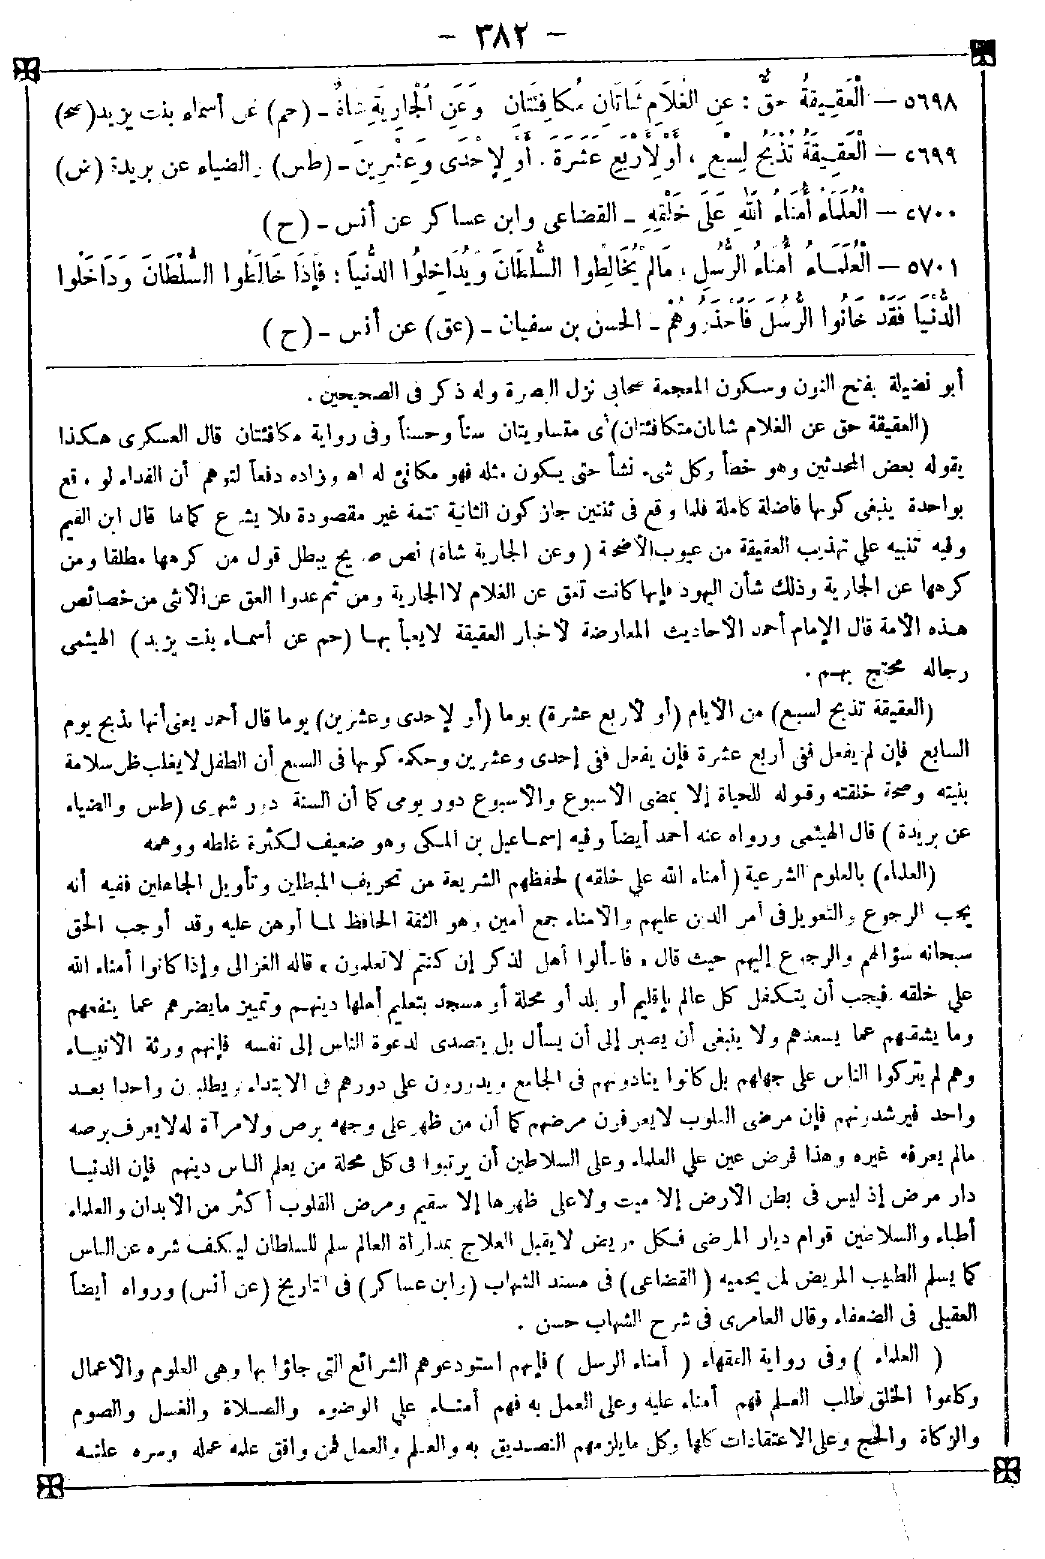 - ٣٨٢ -
٥٦٩٨ - الْعَقِيقَةُ حَقٌّ : عَنِ الْغُلَامِ شَاتَانِ مُكَافِئَتَانِ وَعَنِ الْجَارِيَةِ شَاةٌ - (حم) عن أسماء بنت يزيد (صح)
٥٦٩٩ - الْعَقِيقَةُ تُذْبَحُ لِسَبْعٍ ، أَوْ لِأَرْبَعَ عَشَرَةَ ، أَوْ لِإِحْدَى وَعِشْرِينَ - (طس) والضياء عن بريدة (ض)
٥٧٠٠ - الْعُلَمَاءُ أُمَنَاءُ اللهِ عَلَى خَلْقِهِ - القضاعى وابن عساكر عن أنس - (ح)
٥٧٠١ - الْعُلَمَاءُ أُمَنَاءُ الرُّسُلِ ، مَالَمْ يُخَالِطُوا السُّلْطَانَ وَيُدَاخِلُوا الدُّنْيَا ؛ فَإِذَا خَالَطُوا السُّلْطَانَ وَدَاخَلُوا
الدُّنْيَا فَقَدْ خَانُوا الرُّسُلَ فَاحْذَرُوهُمْ - الحسن بن سفيان - (عق) عن أنس - (ح)
أبو نضيلة بفتح النون وسكون المعجمة صحابى نزل البصرة وله ذكر فى الصحيحين .
(العقيقة حق عن الغلام شاتان متكافئتان) أى متساويتان سناً وحسناً وفى رواية مكافئتان قال العسكرى هكذا
يقوله بعض المحدثين وهو خطأ وكل شىء نشأ حتى يكون مثله فهو مكافئ له اه وزاده دفعاً لتوهم أن الفداء لو وقع
بواحدة ينبغى كونها فاضلة كاملة فلما وقع فى ثنتين جاز كون الثانية تتمة غير مقصودة فلا يشرع كمالها قال ابن القيم
وفيه تنبيه على تهذيب العقيقة من عيوب الأضحية (وعن الجارية شاة) نص صريح يبطل قول من كرهها مطلقا ومن
كرهها عن الجارية وذلك شأن اليهود فإنها كانت تعق عن الغلام لا الجارية ومن ثم عدوا العق عن الأنثى من خصائص
هذه الأمة قال الإمام أحمد الأحاديث المعارضة لأخبار العقيقة لا يعبأ بها (حم عن أسماء بنت يزيد) الهيثمى
رجاله محتج بهم .
(العقيقة تذبح لسبع) من الأيام (أو لأربع عشرة) يوما (أو لإحدى وعشرين) يوما قال أحمد يعنى أنها تذبح يوم
السابع فإن لم يفعل ففى أربع عشرة فإن يفعل ففى إحدى وعشرين وحكمة كونها فى السبع أن الطفل لا يغلب ظن سلامة
بنيته وصحة خلقته وقبوله للحياة إلا بمضى الأسبوع والأسبوع دور يومى كما أن السنة دور شهرى (طس والضياء
عن بريدة) قال الهيثمى ورواه عنه أحمد أيضاً وفيه إسماعيل بن المكى وهو ضعيف لكثرة غلطه ووهمه
(العلماء) بالعلوم الشرعية (أمناء الله على خلقه) لحفظهم الشريعة من تحريف المبطلين وتأويل الجاهلين ففيه أنه
يجب الرجوع والتعويل فى أمر الدين عليهم والأمناء جمع أمين وهو الثقة الحافظ لما أوهن عليه وقد أوجب الحق
سبحانه سؤالهم والرجوع إليهم حيث قال « فاسألوا أهل الذكر إن كنتم لا تعلمون » قاله الغزالى وإذا كانوا أمناء الله
على خلقه فيجب أن يتكفل كل عالم بإقليم أو بلد أو محلة أو مسجد بتعليم أهلها دينهم وتمييز ما يضرهم عما ينفعهم
وما يشقيهم عما يسعدهم ولا ينبغى أن يصبر إلى أن يسأل بل يتصدى لدعوة الناس إلى نفسه فإنهم ورثة الأنبياء
وهم لم يتركوا الناس على جهلهم بل كانوا ينادونهم فى الجامع ويدورون على دورهم فى الابتداء ويطلبون واحدا بعد
واحد فيرشدونهم فإن مرضى القلوب لا يعرفون مرضهم كما أن من ظهر على وجهه برص ولا مرآة له لا يعرف برصه
مالم يعرفه غيره وهذا فرض عين على العلماء وعلى السلاطين أن يرتبوا فى كل محلة من يعلم الناس دينهم فإن الدنيا
دار مرض إذ ليس فى بطن الأرض إلا ميت ولا على ظهرها إلا سقيم ومرض القلوب أكثر من الأبدان والعلماء
أطباء والسلاطين قوام ديار المرضى فكل مريض لا يقبل العلاج بمداراة العالم سلم للسلطان ليكف شره عن الناس
كما يسلم الطبيب المريض لمن يحميه (القضاعى) فى مسند الشهاب (وابن عساكر) فى التاريخ (عن أنس) ورواه أيضاً
العقيلى فى الضعفاء وقال العامرى فى شرح الشهاب حسن .
( العلماء ) وفى رواية الفقهاء ( أمناء الرسل ) فإنهم استودعوهم الشرائع التى جاؤا بها وهى العلوم والأعمال
وكلفوا الخلق طلب العلم فهم أمناء عليه وعلى العمل به فهم أمناء على الوضوء والصلاة والغسل والصوم
والزكاة والحج وعلى الاعتقادات كلها وكل ما يلزمهم التصديق به والعلم والعمل فمن وافق علمه عمله وسره علنه